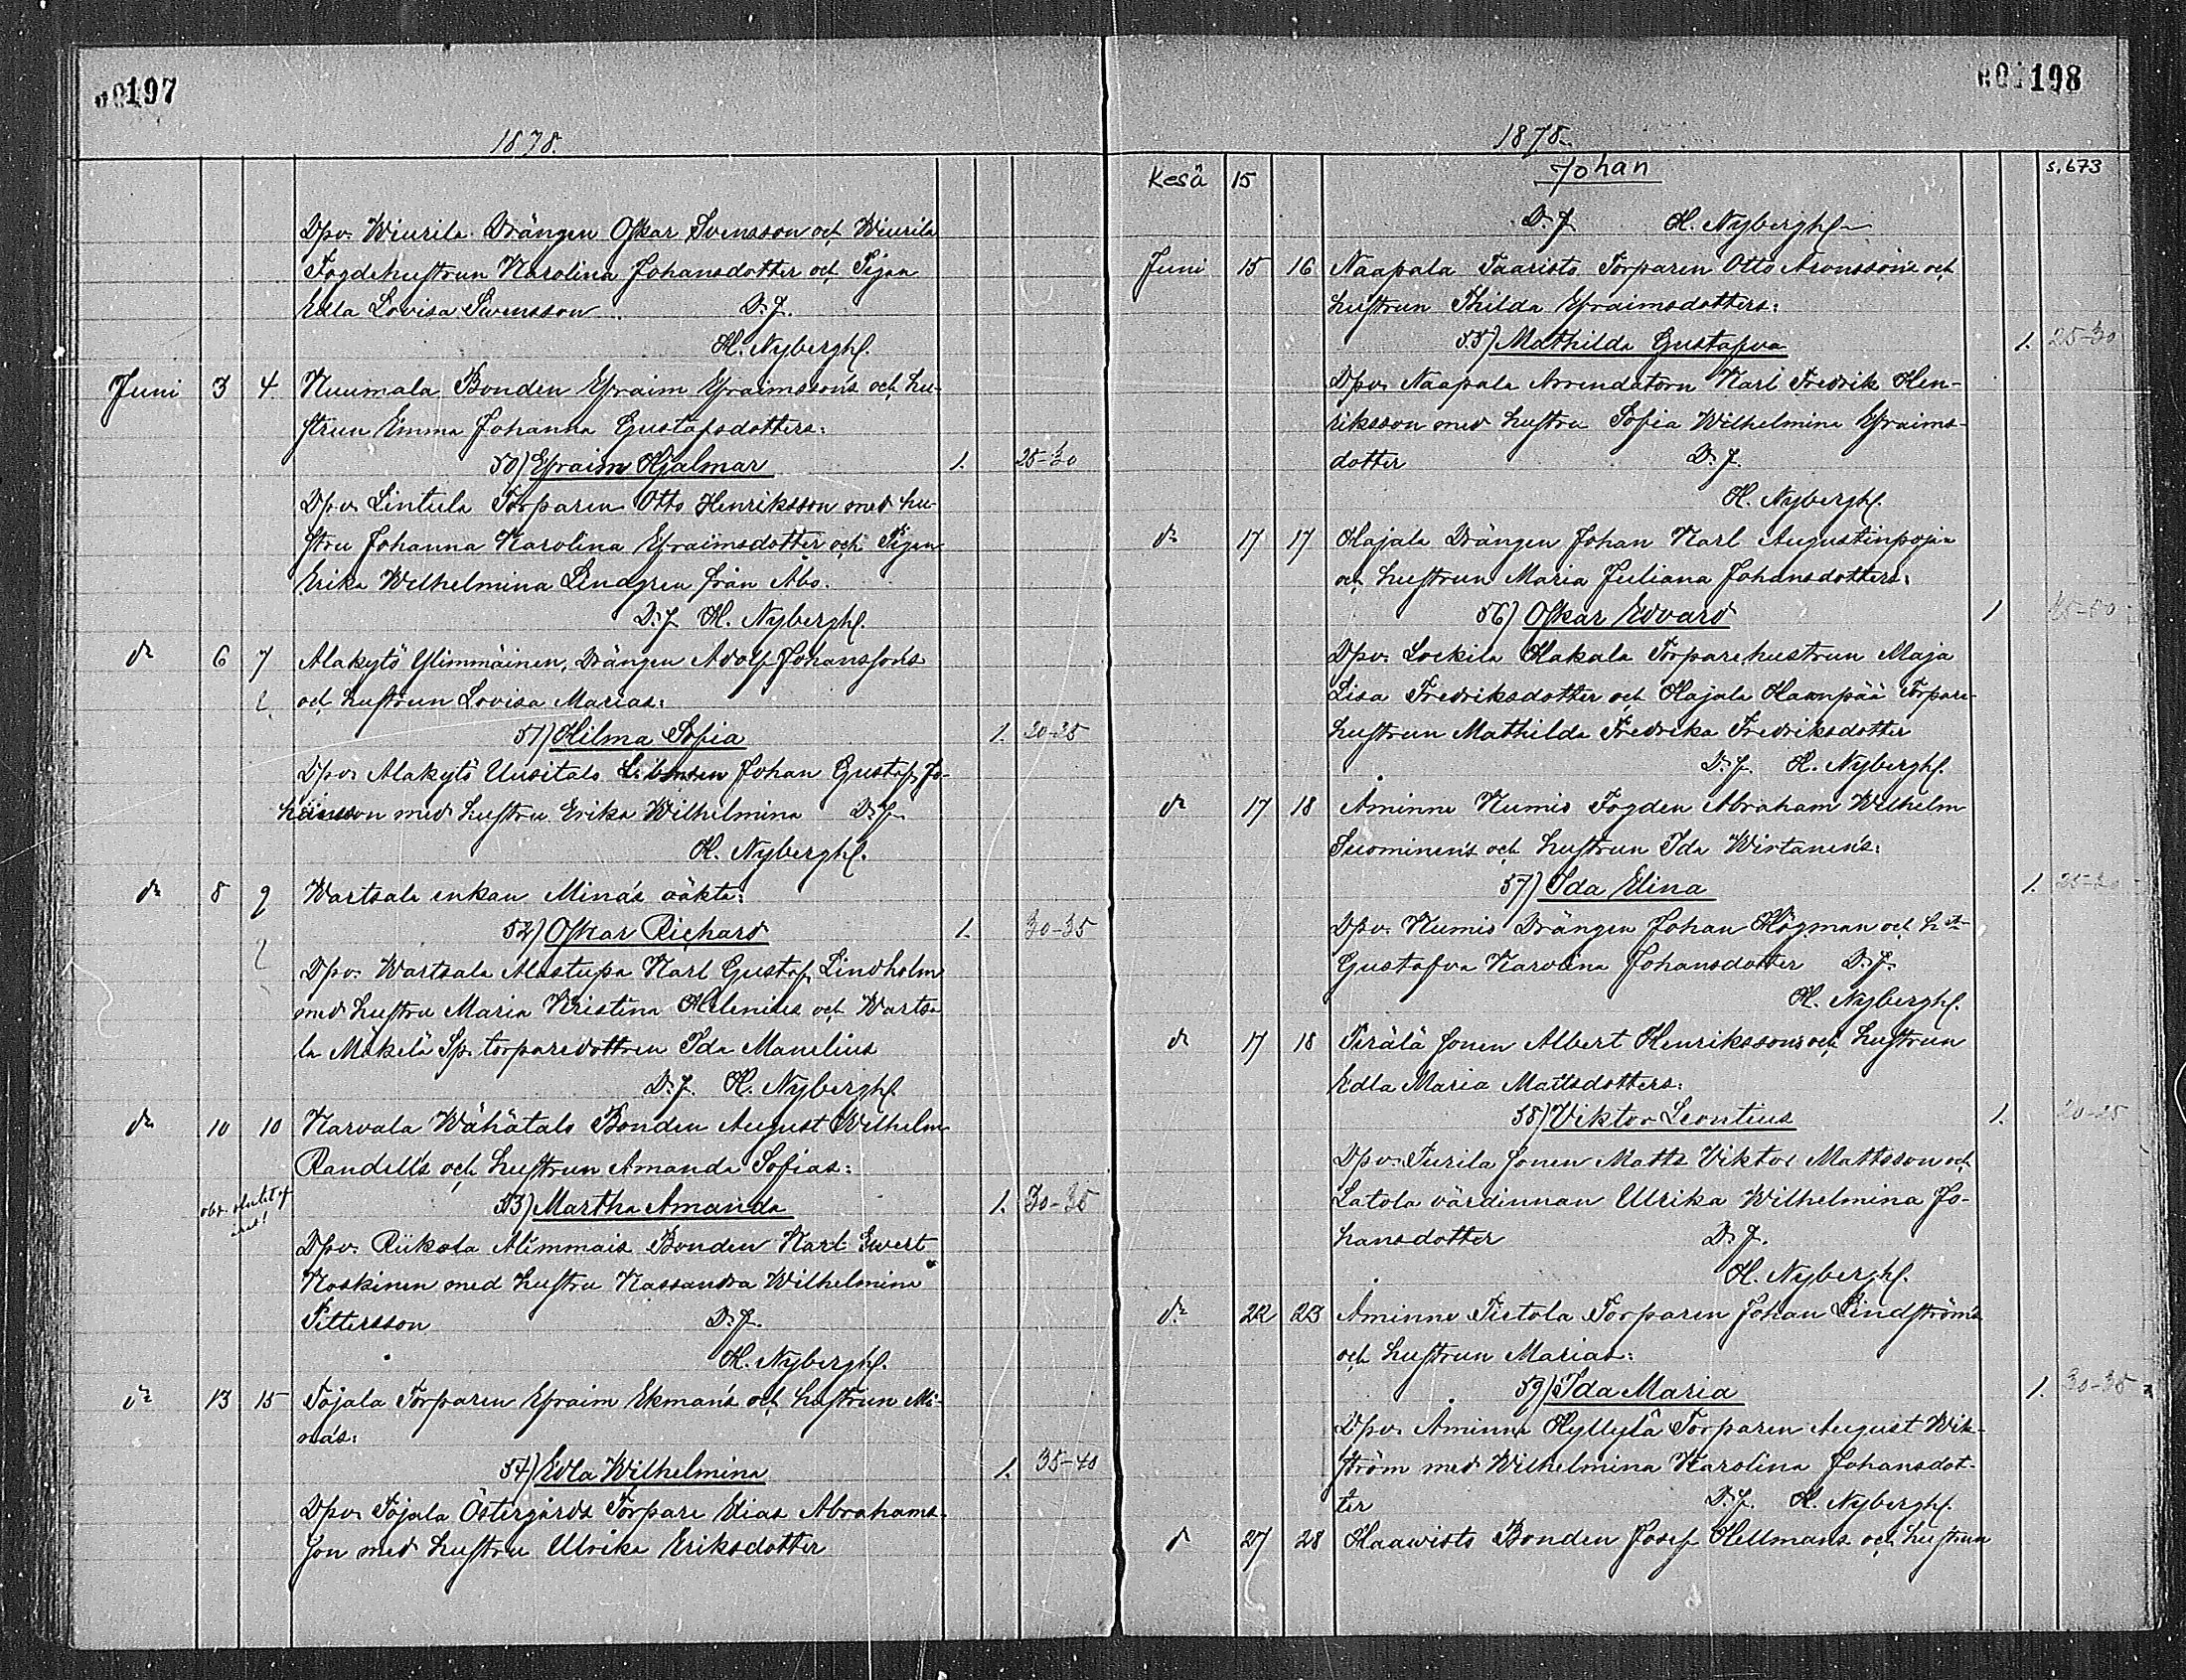 197
1878.
Dpv. Wiurila Drängen Oskar Svensson och Wiurila
Fogdehustrun Karolina Johansdotter och Pigan
Edla Lovisa Svensson D. J.
H. Nybergh.
Juni 3 4. Nuumala Bonden Efraim Efraimsson's och hu-
strun Emma Johanna Gustafsdotters:
50) Efraim Hjalmar 1. 25-30
Dpv. Lintula Torparen Otto Henriksson med hu-
stru Johanna Karolina Efraimsdotter och Pigan
Erika Wilhelmina Lindgren från Åbo.
D. J. H. Nybergh.
do 6 7 Alakytö Ylimmäinen, Drängen Adolf Johansson's
och hustrun Lovisa Marias:
51) Hilma Sofia 1. 30-35
Dpv. Alakytö Uusitalo Johan Gustaf Jo-
hansson med hustru Erika Wilhelmina D. J.
H. Nybergh.
do 8 9 Wartsala enkan Mina's oäkta:
52) Oskar Richard 1. 30-35
Dpv. Wartsala Alastupa Karl Gustaf Lindholm
med hustru Maria Kristina Helenius och Wartsa-
la Mäkelä Sp. torparedottren Ida Manelius
D. J. H. Nybergh.
do 10 10 Karvala Wähätalo Bonden August Wilhelm
Randell's och hustrun Amanda Sofias:
53) Martha Amanda 1. 30-35
Dpv. Riikola Alimmais Bonden Karl Evert
Koskinen med hustru Kassandra Wilhelmina
Pettersson D. J.
H. Nybergh.
do 13 15 Tojala Torparen Efraim Ekman's och hustrun Mi-
nas:
54) Edla Wilhelmina 1. 35-40
Dpv. Tojala Östergårds Torpare Elias Abrahams-
son med hustru Ulrika Eriksdotter
198
1878.
Kesä 15 Johan s. 673
D. J. H. Nybergh.
Juni 15 16 Naapala Taaristo Torparen Otto Aronsson's och
hustrun Thilda Efraimsdotters:
55) Mathilda Gustafva 1. 25-30
Dpv. Naapala Arrendatorn Karl Fredrik Hen-
riksson med hustru Sofia Wilhelmina Efraims-
dotter D. J.
H. Nybergh.
do 17 17 Hajala Drängen Johan Karl Augustinpojan
och hustrun Maria Juliana Johansdotters:
56) Oskar Edvard 1
Dpv. Kakala Torparehustrun Maja
Lisa Fredriksdotter och Hajala Haanpää Torpare-
hustrun Mathilda Fredrika Fredriksdotter
D. J. H. Nybergh.
do 17 18 Åminne Numis Fogden Abraham Wilhelm
Suominen's och hustrun Ida Wirtanen's:
57) Ida Elina 1. 25-30
Dpv. Numis Drängen Johan Högman och h:u
Gustafva Karolina Johansdotter D. J.
H. Nybergh.
do 17 18 Pärälä Sonen Albert Henriksson's och hustrun
Edla Maria Mattsdotters:
58) Viktor Leontius 1. 20-25
Dpv. Turila Sonen Matts Viktor Mattsson och
Latola värdinnan Ulrika Wilhelmina Jo-
hansdotter D. J.
H. Nybergh.
do 22 23 Åminne Tietola Torparen Johan Lindström's
och hustrun Marias:
59) Ida Maria 1. 30-35
Dpv. Åminne Hyllylä Torparen August Wik-
ström med Wilhelmina Karolina Johansdot-
ter D. J. H. Nybergh.
do 27 28 Haawisto Bonden Josef Hellmans och hustrun